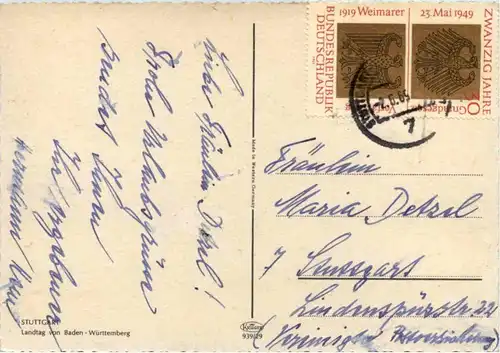 1919 Weimarer
23. Mai 1949
ZWANZIG JAHRE
30
Grundgesetz
BUNDESREPUBLIK
DEUTSCHLAND
7
Liebe Fräulein Detzel!
Frohe Urlaubsgrüsse
sendet Ihnen
Ihr
Hermann
Made in Western Germany
Fräulein
Maria Detzel
7 Stuttgart
Lindenspürstr. 22
STUTTGART
Landtag von Baden-Württemberg